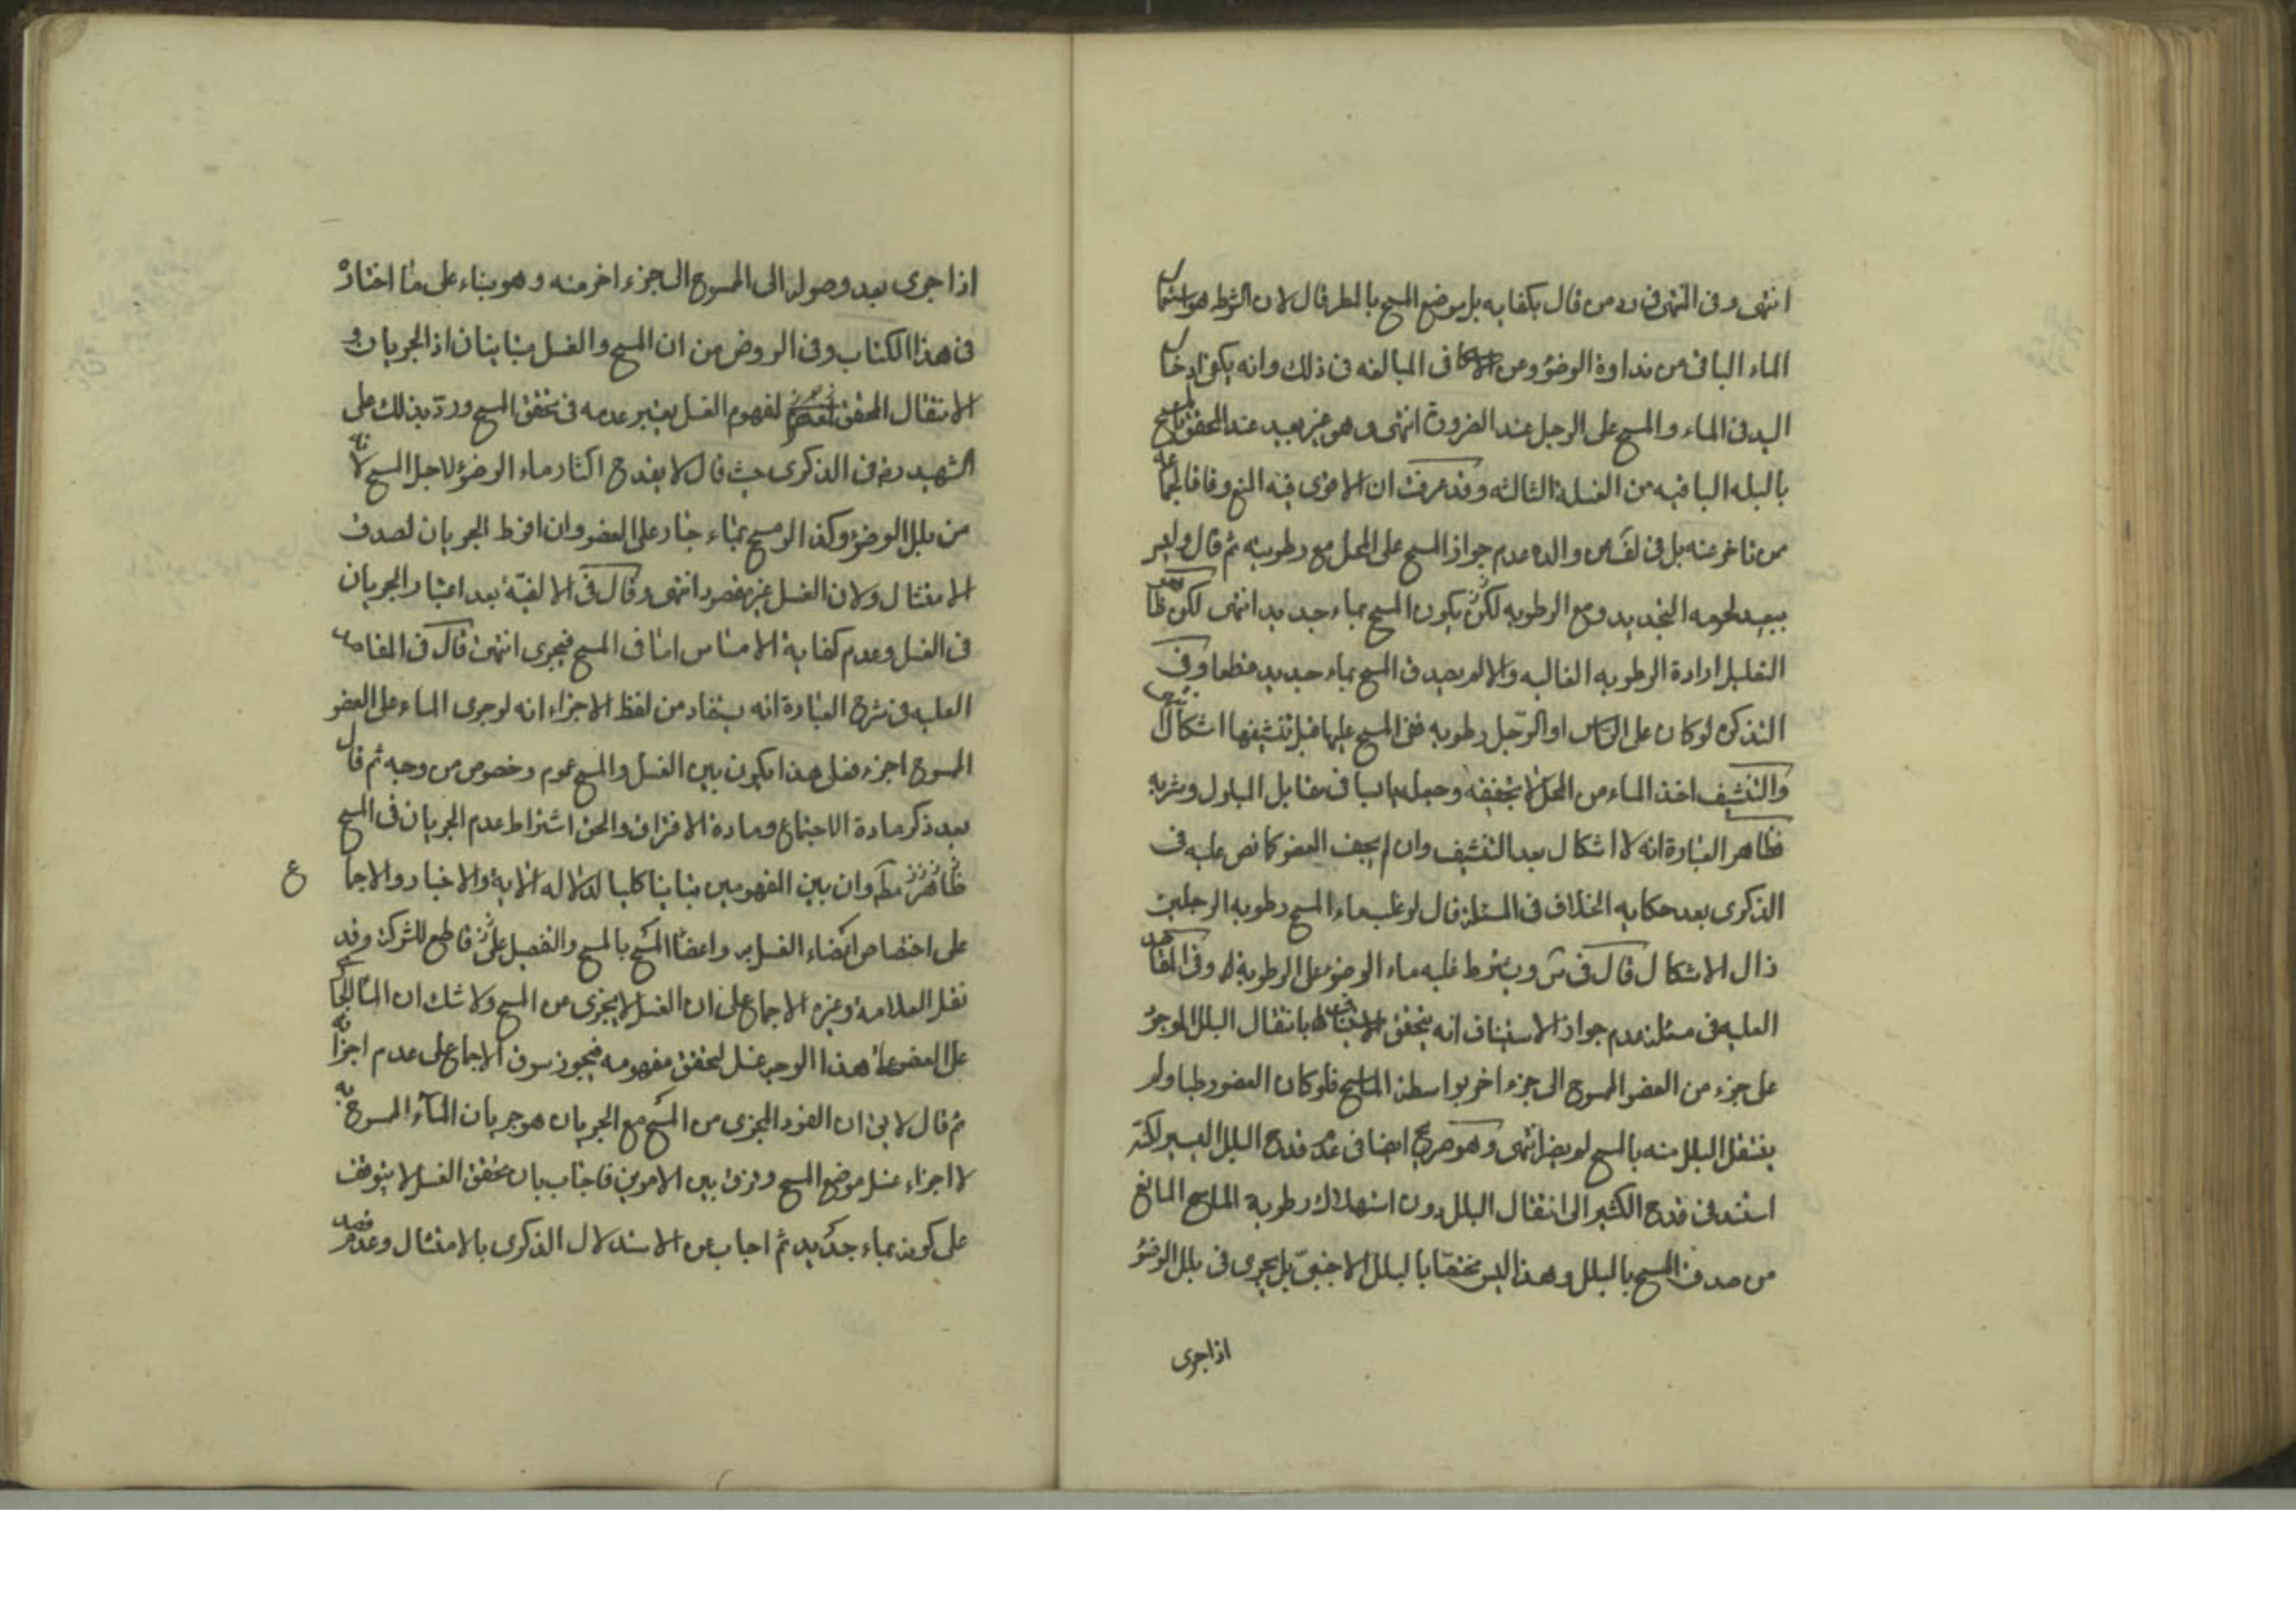 انتهى وفى المنتهى فى رد من قال بكفايه بل موضع المسح بالمطر قال لان الشرط هو استعمال
الماء الباقى من نداوة الوضوء وعن فى المبالغه فى ذلك وانه يكفى ادخال
اليد فى الماء والمسح على الرجل عند الضرورة انتهى وهو غير بعيد عند المحقق المسح
بالبله الباقيه من الغسلة الثالثه وقد عرفت ان الاقوى فيه المنع وفاقا لجماعه
من تاخر عنه بل فى عن والده عدم جواز المسح على المحل مع رطوبته ثم قال وليس
ببعيد لحرمه التجديد ومع الرطوبه يكون المسح بماء جديد انتهى لكن
التعليل ارادة الرطوبه الغالبه والا لم يصدق المسح بماء جديد قطعا وفى
التذكره لو كان على الراس او الرجل رطوبه ففى المسح عليها قبل تنشيفها اشكال
والتنشيف اخذ الماء من المحل لا تجفيفه وجعله يابسا فى مقابل المبلول
فظاهر العبارة انه لا اشكال بعد التنشيف وان لم يجف العضو كما نص عليه فى
الذكرى بعد حكايه الخلاف فى المسئلة قال لو غلب ماء المسح رطوبه الرجلين
زال الاشكال قال فى س ويشترط غلبه ماء الوضوء على الرطوبة وفى المقاصد
العليه فى مسئلة عدم جواز الاستيناف انه يتحقق بانتقال البلل الموجود
على جزء من العضو الممسوح الى جزء اخر بواسطة الماسح فلو كان العضو رطبا ولم
ينتقل البلل منه بالمسح لم يضر انتهى وهو صريح ايضا فى عدم قدح البلل اليسير لكنه
استند فى قدح الكثير الى انتقال البلل دون استهلاك رطوبة الماسح المانع
من صدق المسح بالبلل وهذا ليس مختصا بالبلل الاجنبى بل يجرى فى بلل الوضوء
اذا جرى
اذا جرى بعد وصوله الى الممسوح الى جزء اخر منه وهو بناء على ما اختاره
فى هذا الكتاب وفى الروض من ان المسح والغسل متباينان اذ الجريان و
الانتقال المحقق لمفهوم الغسل يعتبر عدمه فى تحقق المسح ورد بذلك على
الشهيد ره فى الذكرى حيث قال لا يقدح اكثار ماء الوضوء لاجل المسح لانه
من بلل الوضوء وكذا لو مسح بماء جار على العضو وان افرط الجريان لصدق
الامتثال ولان الغسل غير مقصود انتهى وقال فى الالفية بعد اعتبار الجريان
فى الغسل وعدم كفاية الامساس اما فى المسح فيجزى انتهى قال فى المقاصد
العليه فى شرح العبارة انه يستفاد من لفظ الاجزاء انه لو جرى الماء على العضو
الممسوح اجزء فعلى هذا يكون بين الغسل والمسح عموم وخصوص من وجه ثم قال
بعد ذكر مادة الاجتماع ومادة الافتراق والحق اشتراط عدم الجريان فى المسح
مط وان بين المفهومين تباينا كليا لدلاله الاية والاخبار والاجما ع
على اختصاص اعضاء الغسل به واعضاء المسح بالمسح والتفصيل قاطع للشركة وقد
نقل العلامة وغيره الاجماع على ان الغسل لا يجزى عن المسح ولا شك ان الماء الجارى
على العضو على هذا الوجه غسل لتحقق مفهومه فيجوز الاجماع على عدم اجزائه
ثم قال لا يق ان الفرد المجزى من المسح مع الجريان هو جريان الماء الممسوح به
لا اجزاء غسل موضع المسح وفرق بين الامرين فاجاب بان تحقق الغسل لا يتوقف
على كونه بماء جديد ثم اجاب عن الاستدلال الذكرى بالامتثال وعدم قصد